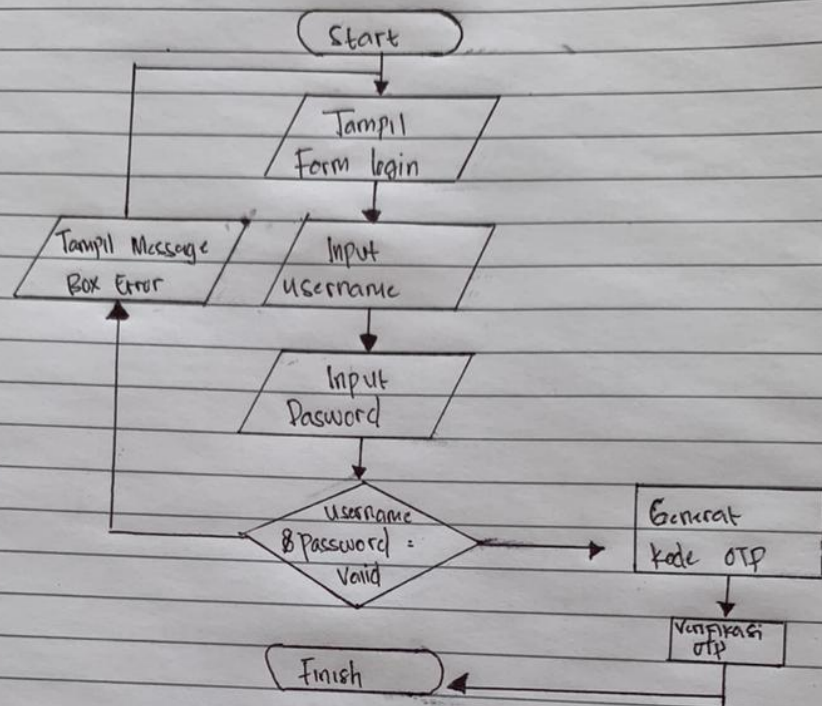 Start
Tampil
Form login
Tampil Message
Box Error
Input
username
Input
Dasword
username
& password =
Valid
Generat
kode OTP
Verifikasi
OTP
Finish